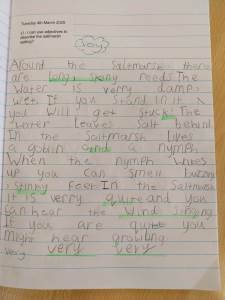 Tuesday 4th March 2025
LI: I can use adjectives to
describe the saltmarsh
setting?
Around the saltmarsh there
are long, skiny reeds. The
water is verry damp,
wet. If you stand in it
you will get stuck! The
water leaves salt behind
In the saltmarsh lives
a goblin and a nymph
When the nymph wakes
up you can smell
Stinky feet. In the saltmarsh
it is verry quite and you
can hear the wind singing.
If you are quite you
might hear growling
very very
very